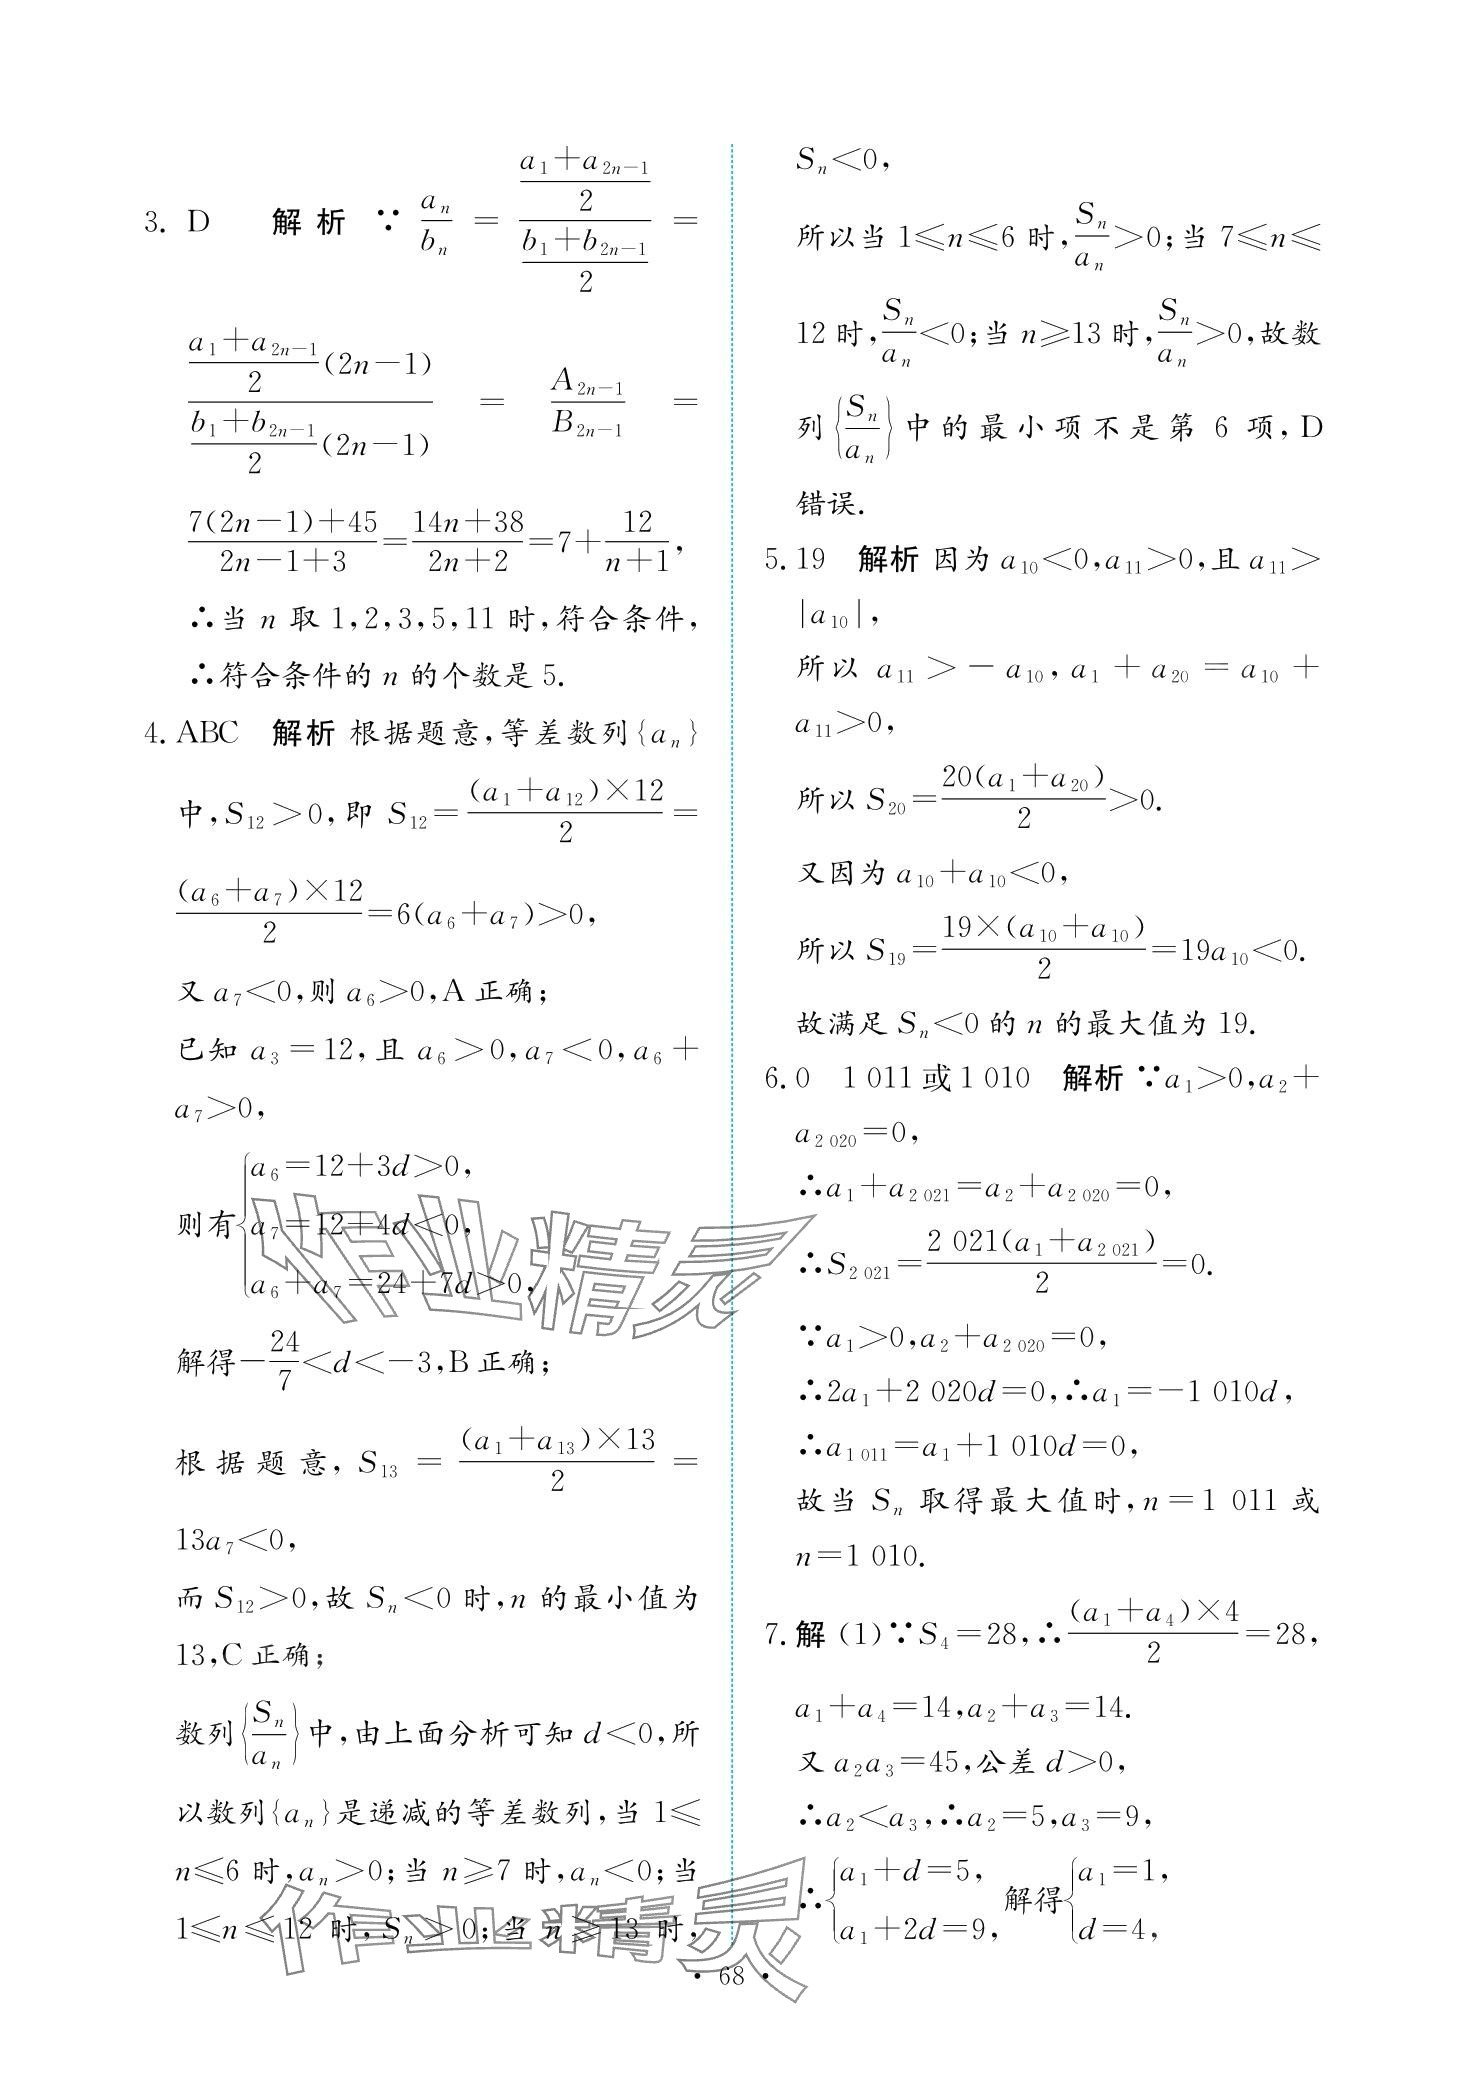 3. D 解析 ∵ \frac{a_n}{b_n} = \frac{\frac{a_1+a_{2n-1}}{2}}{\frac{b_1+b_{2n-1}}{2}} =
\frac{\frac{a_1+a_{2n-1}}{2}(2n-1)}{\frac{b_1+b_{2n-1}}{2}(2n-1)} = \frac{A_{2n-1}}{B_{2n-1}} =
\frac{7(2n-1)+45}{2n-1+3}=\frac{14n+38}{2n+2}=7+\frac{12}{n+1},
∴当 n 取 1,2,3,5,11 时,符合条件,
∴符合条件的 n 的个数是 5.
4. ABC 解析 根据题意,等差数列{a_n}
中,S_{12}>0,即 S_{12}=\frac{(a_1+a_{12})×12}{2}=
\frac{(a_6+a_7)×12}{2}=6(a_6+a_7)>0,
又 a_7<0,则 a_6>0,A 正确;
已知 a_3=12,且 a_6>0,a_7<0,a_6+
a_7>0,
则有{a_6=12+3d>0,
a_7=12+4d<0,
a_6+a_7=24+7d>0,
解得-\frac{24}{7}<d<-3,B 正确;
根据题意, S_{13}=\frac{(a_1+a_{13})×13}{2}=
13a_7<0,
而 S_{12}>0,故 S_n<0 时,n 的最小值为
13,C 正确;
数列{\frac{S_n}{a_n}}中,由上面分析可知 d<0,所
以数列{a_n}是递减的等差数列,当 1≤
n≤6 时,a_n>0;当 n≥7 时,a_n<0;当
1≤n≤12 时,S_n>0;当 n≥13 时,
S_n<0,
所以当 1≤n≤6 时,\frac{S_n}{a_n}>0;当 7≤n≤
12 时,\frac{S_n}{a_n}<0;当 n≥13 时,\frac{S_n}{a_n}>0,故数
列{\frac{S_n}{a_n}}中的最小项不是第 6 项,D
错误.
5. 19 解析 因为 a_{10}<0,a_{11}>0,且 a_{11}>
|a_{10}|,
所以 a_{11}>-a_{10},a_1+a_{20}=a_{10}+
a_{11}>0,
所以 S_{20}=\frac{20(a_1+a_{20})}{2}>0.
又因为 a_{10}+a_{10}<0,
所以 S_{19}=\frac{19×(a_{10}+a_{10})}{2}=19a_{10}<0.
故满足 S_n<0 的 n 的最大值为 19.
6. 0 1 011或1 010 解析 ∵a_1>0,a_2+
a_{2 020}=0,
∴a_1+a_{2 021}=a_2+a_{2 020}=0,
∴S_{2 021}=\frac{2 021(a_1+a_{2 021})}{2}=0.
∵a_1>0,a_2+a_{2 020}=0,
∴2a_1+2 020d=0,∴a_1=-1 010d,
∴a_{1 011}=a_1+1 010d=0,
故当 S_n 取得最大值时,n=1 011 或
n=1 010.
7. 解 (1)∵S_4=28,∴\frac{(a_1+a_4)×4}{2}=28,
a_1+a_4=14,a_2+a_3=14.
又 a_2a_3=45,公差 d>0,
∴a_2<a_3,∴a_2=5,a_3=9,
∴{a_1+d=5, 解得{a_1=1,
a_1+2d=9, d=4,
• 68 •
作业精灵
作业精灵